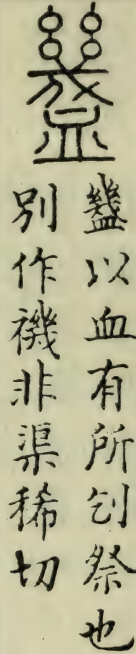 𧗐
𧗐以血有所刏祭也
別作禨非渠稀切